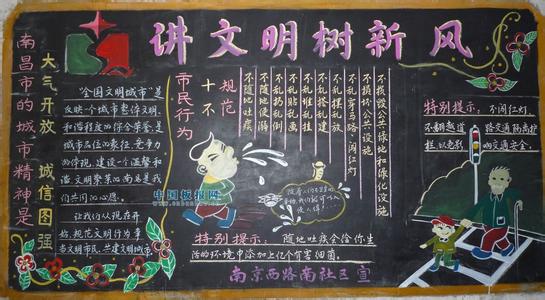 讲文明树新风
南昌市的城市精神是
大气开放 诚信图强
“全国文明城市”是
反映一个城市整体文明
和谐程度的综合荣誉,是
城市名位的象征,竞争
力的体现,建设一个温馨和
谐、文明繁荣的南昌是我
们共同的心愿。
让我们从现在开
始,规范文明行为,争
当文明市民,共建文明城市。
市民行为
十不
规范
不随地吐痰
不随地便溺
不乱扔乱倒
不乱贴乱画
不乱堆乱挂
不乱搭乱建
不乱摆乱放
不乱穿马路、闯红灯
不损坏公共设施
不损毁公共绿地和绿化设施
特别提示: 不闯红灯,
不翻越道路交通防高护
栏,以免影
响交通安全。
中国板报网
特别提示: 随地吐痰会给你生
活的环境中添加上亿个有害细菌。
南京西路南社区宣